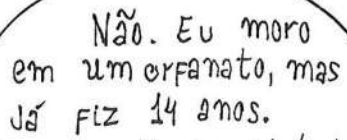 Não. Eu moro
em um orfanato, mas
Já fiz 14 anos.